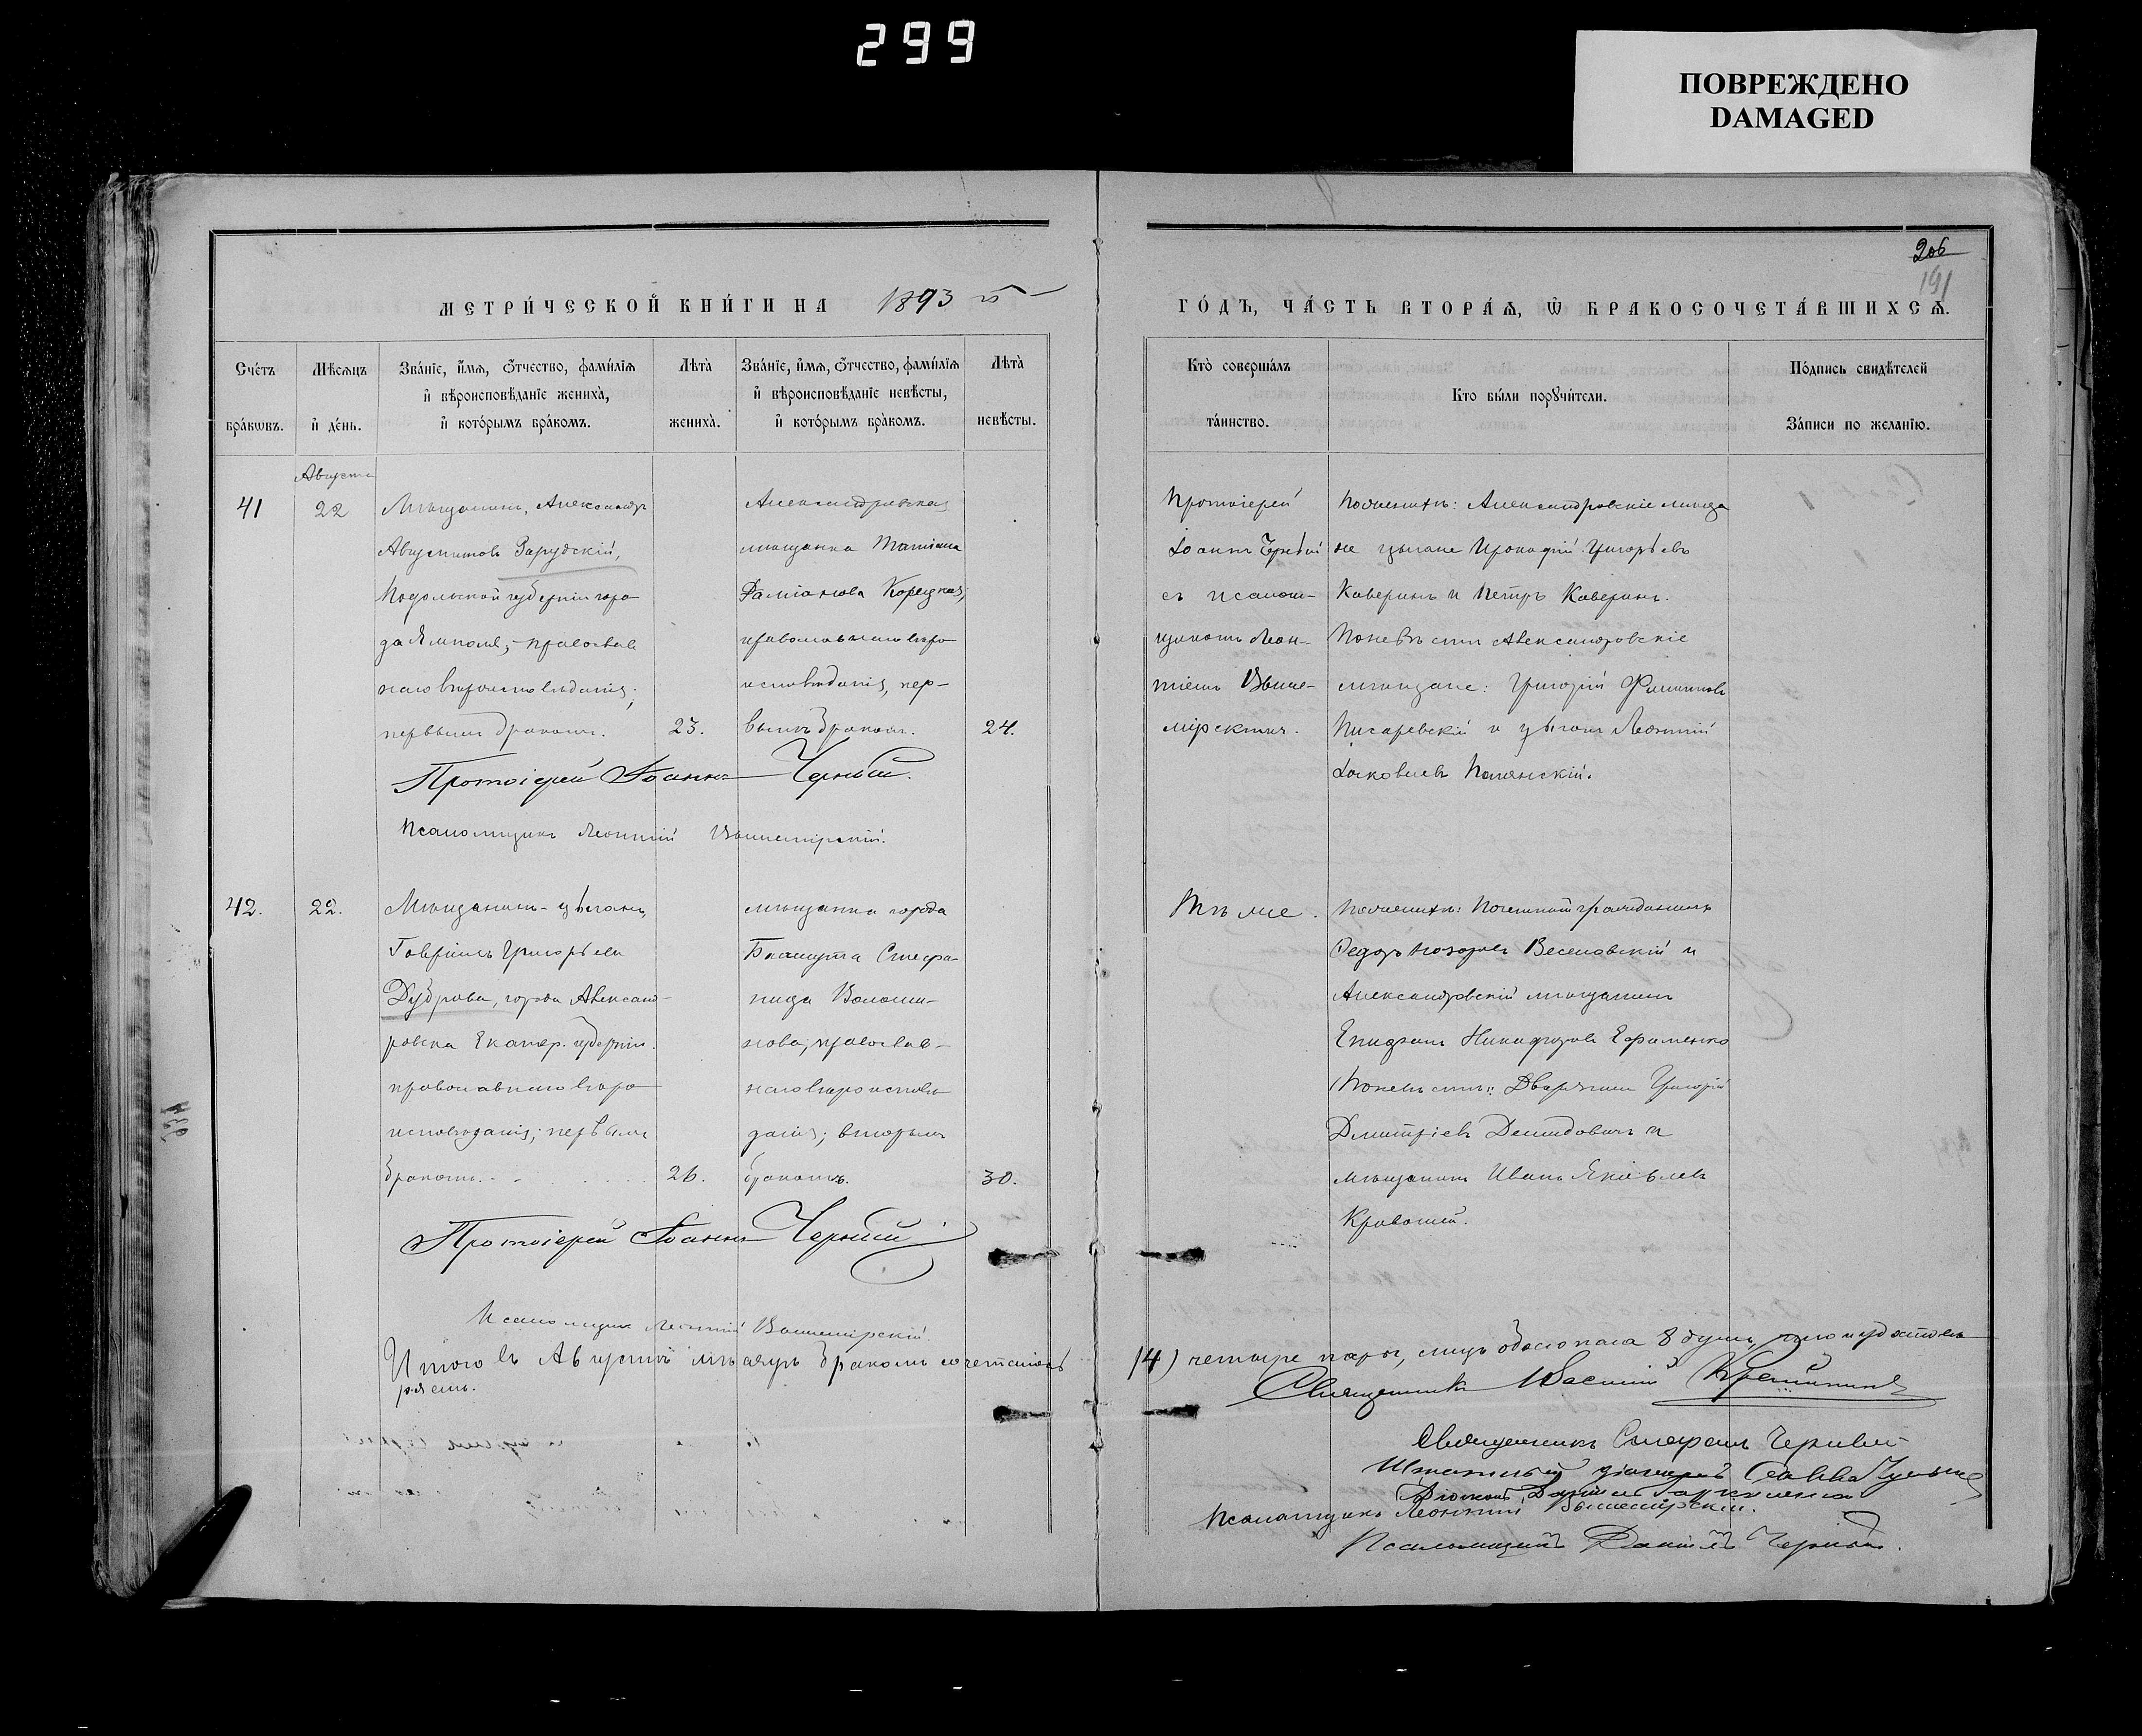 299
ПОВРЕЖДЕНО
DAMAGED
206
191
МЕТРИ́ЧЕСКОЙ КНИ́ГИ НА 1893 й
ГО́ДЪ, ЧА́СТЬ ВТОРА́Ѧ, Ѡ҆ БРАКОСОЧЕТА́ВШИХСѦ.
Сче́тъ бра́кѡвъ.
Мѣ́сѧцъ и҆ де́нь.
Зва́нїе, и҆́мѧ, ѻ҆́тчество, фами́лїѧ
и҆ вѣроисповѣ́данїе жениха̀,
и҆ кото́рымъ бра́комъ.
Лѣта̀ жениха̀.
Зва́нїе, и҆́мѧ, ѻ҆́тчество, фами́лїѧ
и҆ вѣроисповѣ́данїе невѣ́сты,
и҆ кото́рымъ бра́комъ.
Лѣта̀ невѣ́сты.
Кто̀ соверша́лъ
та́инство.
Кто бы́ли порꙋчи́тели.
По́дпись свидѣ́телей
За́писи по жела́нїю.
Августа
41
22
Мѣщанинъ, Александръ
Августиновъ Зарудскій,
Подольской губерніи горо
да Ямполя, православ
наго вѣроисповѣданія;
первымъ бракомъ.
23.
Александровская
мѣщанка Татіана
Даміанова Корецкая,
православнаго вѣро
исповѣданія, пер-
вымъ бракомъ.
24.
Протоіерей
Іоаннъ Черный
съ псалом-
щикомъ Леон-
тіемъ Выше-
мірскимъ.
Поженихѣ: Александровскіе мѣща
не цыгане Прокофій Григорьевъ
Каверинъ и Петръ Каверинъ.
Поневѣстѣ Александровскіе
мѣщане: Григорій Филиповъ
Писаревскій и цыганъ Леонтій
Іаковлевъ Полянскій.
Протоіерей Іоаннъ Черный.
Псаломщикъ Леонтій Вышемірскій.
42.
22.
Мѣщанинъ-цыганъ,
Гавріилъ Григорьевъ
Дуброва, города Александ-
ровска Екатер. губерніи.
православнаго вѣро
исповѣданія; первымъ
бракомъ.
26.
мѣщанка города
Бахмута Стефа-
нида Волоши-
нова, православ-
наго вѣроисповѣ
данія; вторымъ
бракомъ.
30.
Тѣ же.
Поженихѣ: Почетный гражданинъ
Федоръ Назаровъ Веселовскій и
Александровскій мѣщанинъ
Епифанъ Никифоровъ Ефименко
Поневѣстѣ: Дворянинъ Григорій
Дмитріевъ Демидовичъ и
мѣщанинъ Иванъ Яковлевъ
Кривошей.
Протоіерей Іоаннъ Черный
Псаломщикъ Леонтій Вышемірскій.
Итого въ Августѣ мѣсяцѣ бракомъ сочеталось (4) четыре пары, лицъ обоего пола 8 душъ,
Священникъ Василій
Священникъ Стефанъ Черный
Штатный діаконъ
Діаконъ
Псаломщикъ Леонтій Вышемірскій.
Псаломщикъ Даніилъ Черный.